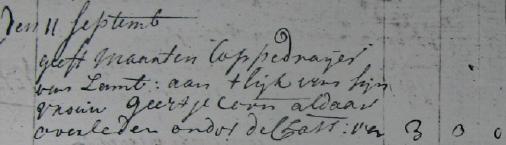 den 11 Septemb
geeft Maarten Coppedraijer
van Lamt: aan t lijk van sijn
vrouw geertje corn aldaar
overleden onder de Class: van 3 0 0